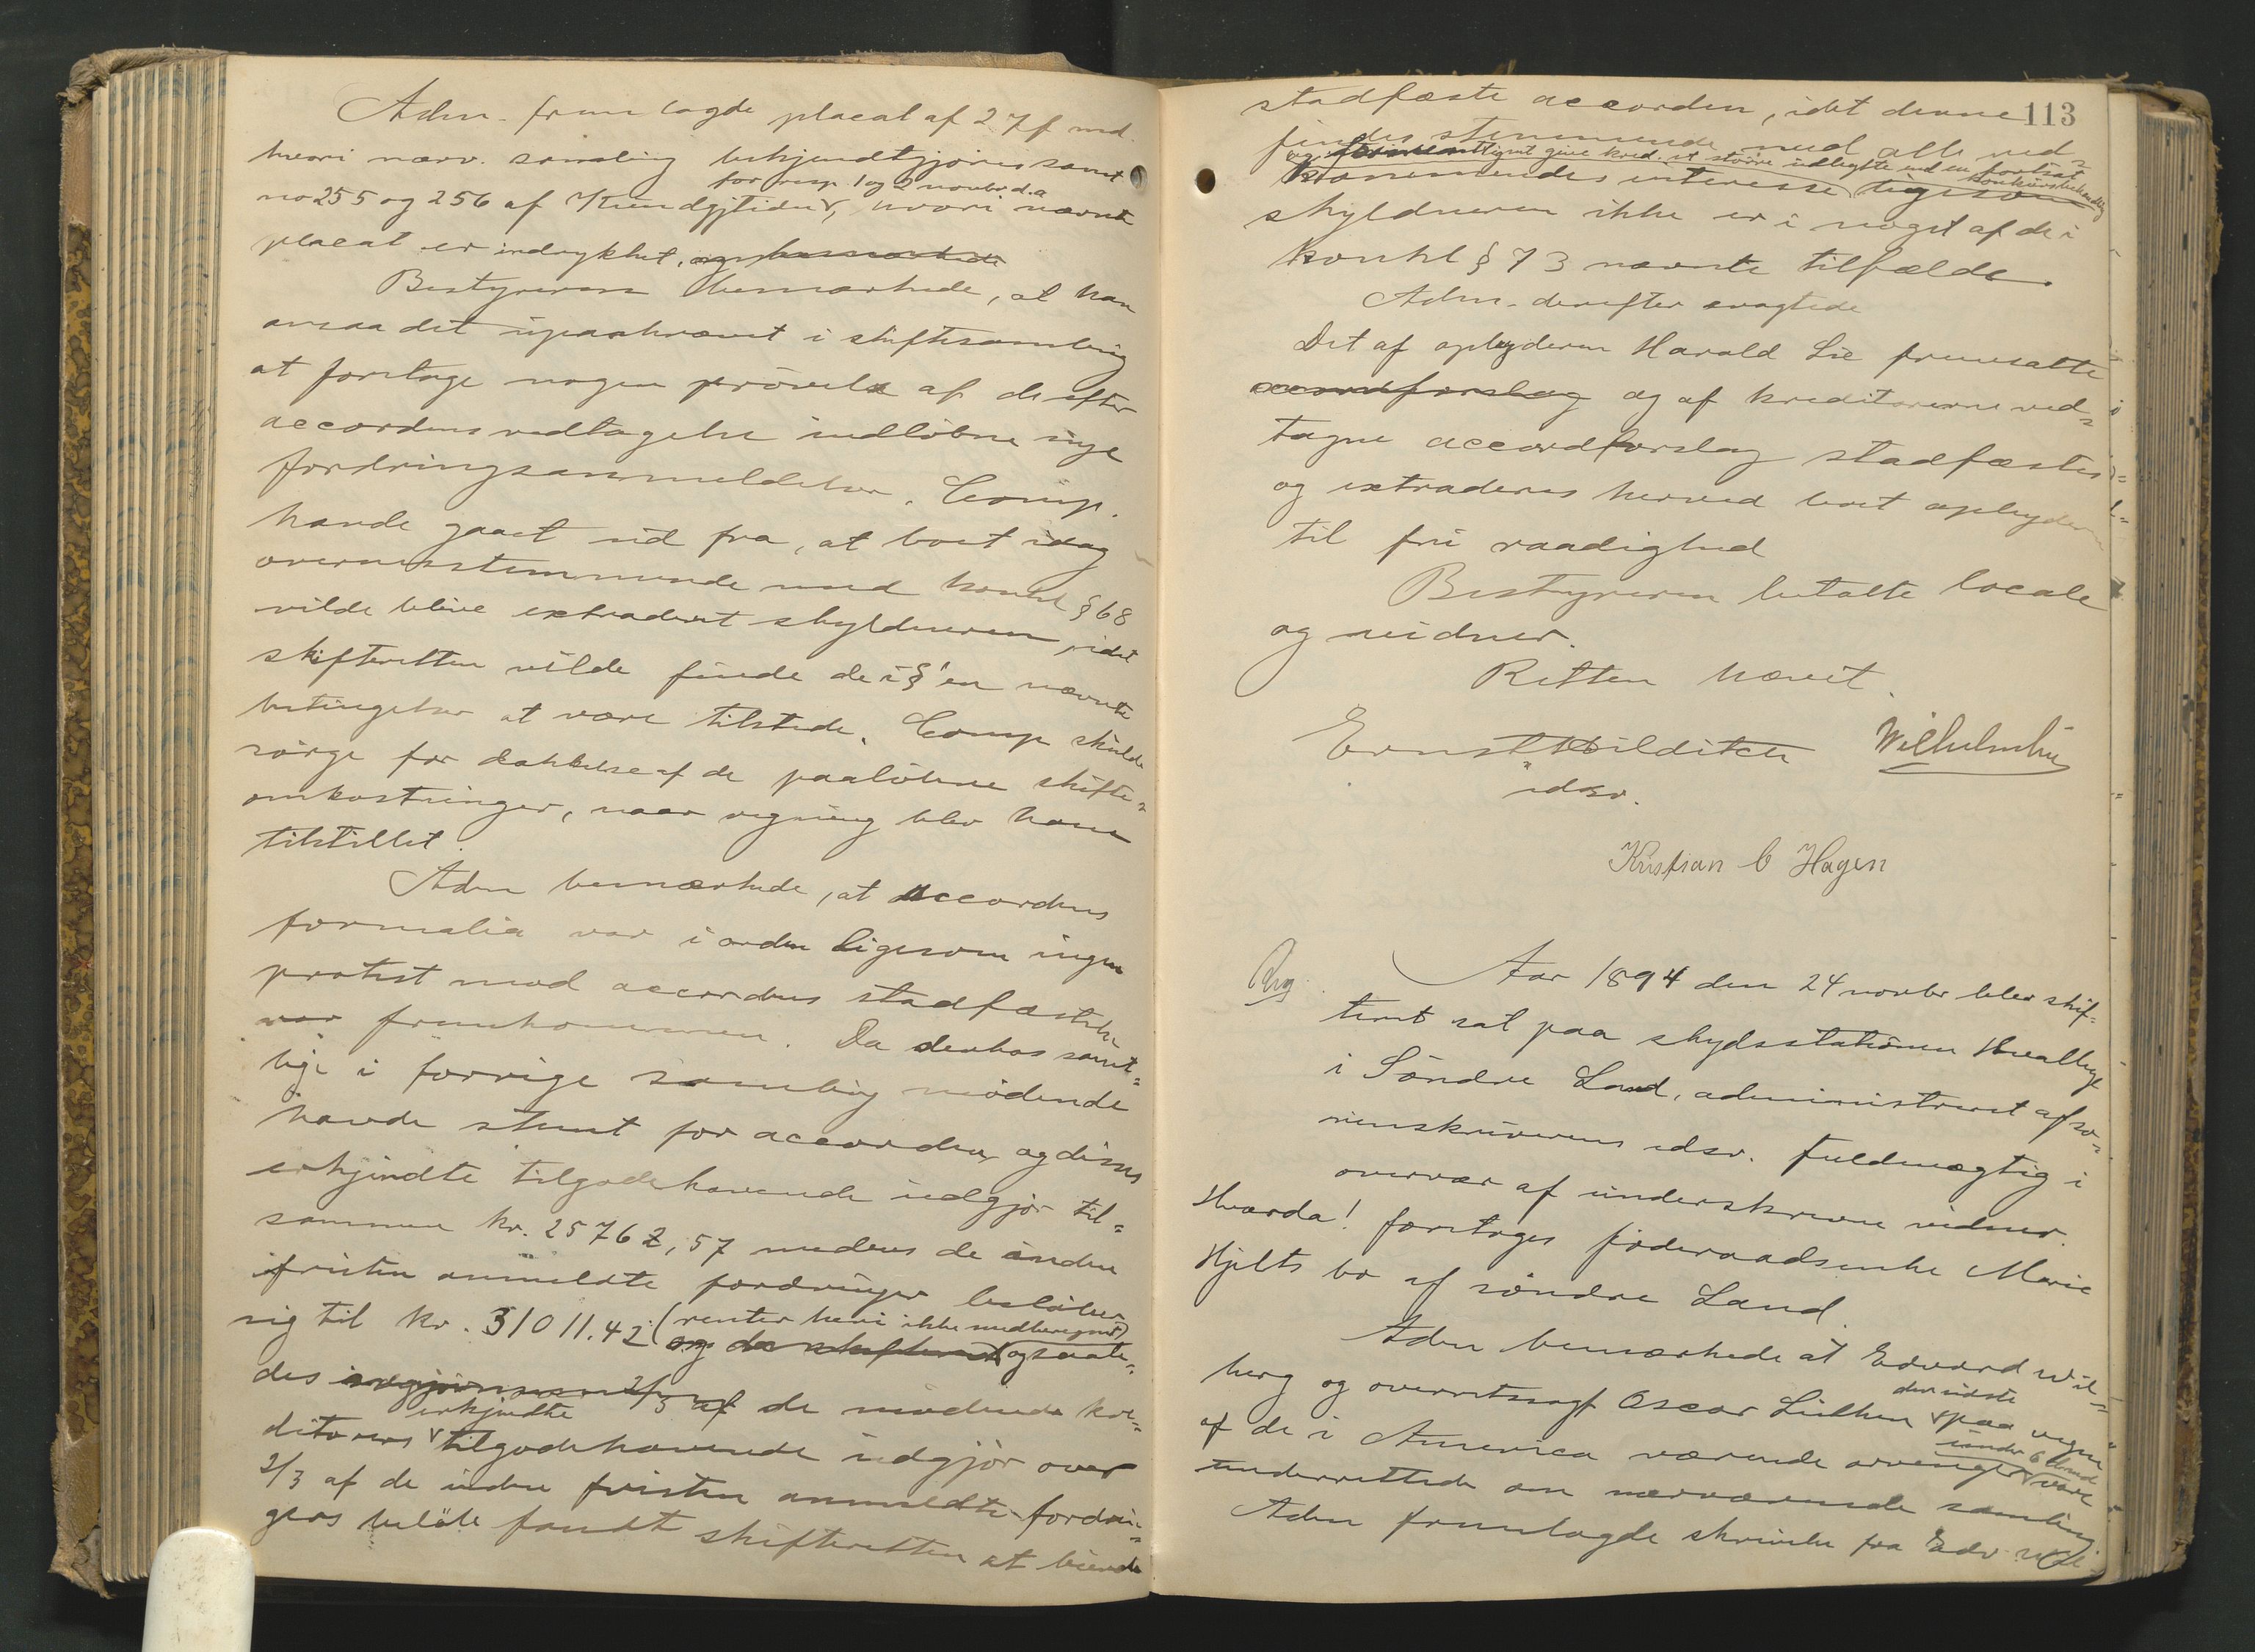 Adm. fremlagde placat af 27 f md.
hvori nærv. samling bekjendtgjøres samt
for resp. 1 og 2 novbr d.a
no 255 og 256 af Kundgjtidne, hvori nævnte
placat er indrykket, og bemærkede
Bestyreren bemærkede, at han
ansaa det upaakrævet i skiftesamling
at foretage nogen prövelse af de efter
accordens vedtagelse indløbne nye
fordringsanmeldelser. Comp.
havde gaaet ud fra, at boet idag
overensstemmende med konkl § 68
vilde blive extraderet skyldneren, idet
skifteretten vilde finde de i §'en nævnte
betingelser at være tilstede. Comp skulde
sörge for dækkelse af de paaløbne skifte=
omkostninger, naar regning blev ham
tilstillet.
Adm bemærkede, at accordens
formalia var i orden ligesom ingen
protest mod accordens stadfæstelse
var fremkommen. Da derhos samt=
lige i forrige samling mödende
havde stemt for accorden, og disses
erkjendte tilgodehavende udgjør til=
sammen kr. 25762,57 medens de inden
fristen anmeldte fordringer beløber
sig til kr. 31011.42 (renter heri ikke medberegnet)
og da og saale=
des 2/3 af de mödende kre=
erkjendte
ditorers tilgodehavende udgjør over
2/3 af de inden fristen anmeldte fordrin=
gers beløb fandt skifteretten at burde
113
stadfæste accorden, idet denne
findes stemmende med alle ved=
og give kred. et større udbytte end en fortsat
konkursbehandling
kommendes interesse ligesom
skyldneren ikke er i noget af de i
konkl § 73 nævnte tilfælde.
Adm. derefter avagtede
Det af opbyderen Harald Lie fremsatte
accordforslag og af kreditorerne ved=
tagne accordforslag stadfæstes
og extraderes herved boet opbyderen
til fri raadighed
Bestyreren betalte locale
og vidner.
Retten hævet.
Ernst Hilditch
edsv.
Wilhelm Lie
Kristian C Hagen
Aar 1894 den 24 novbr blev skif=
teret sat paa skydsstationen Hvalbye
i Söndre Land, administreret af so=
renskriverens edsv. fuldmægtig i
overvær af underskrevne vidner.
Hvorda! foretoges föderaadsenke Marie
Hjelts bo af söndre Land.
Adm bemærkede at Edvard Wil=
berg og overretssagf Oscar Lüthken paa vegne
den sidste
af de i America værende arvinger vare
under 6 d md
underrettede om nærværende samling
Adm fremlagde skrivelse fra Edv. Wil=